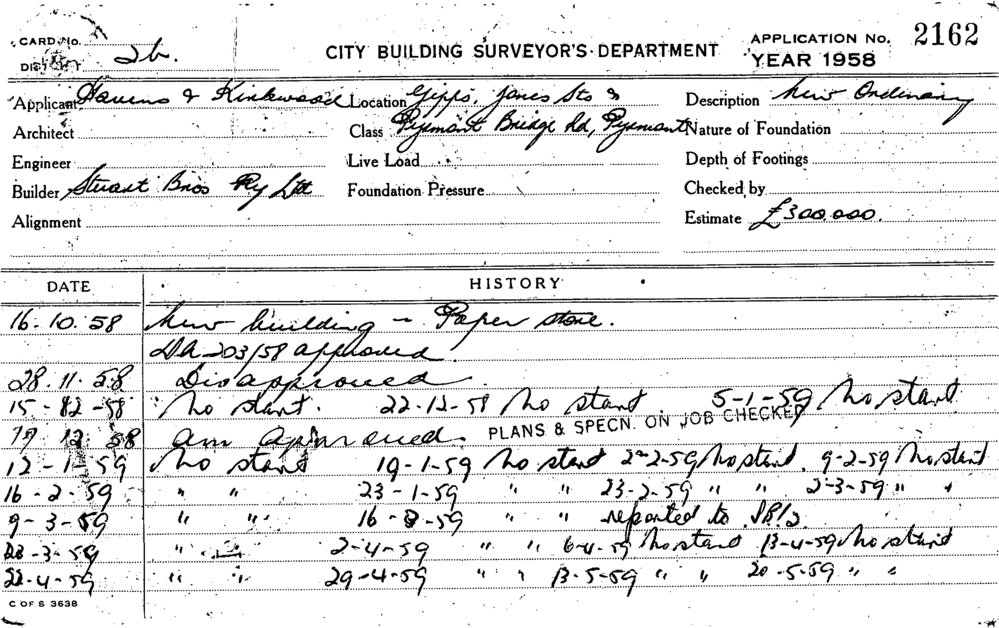 CARD No.
DISTRICT 2b.
CITY BUILDING SURVEYOR'S DEPARTMENT
APPLICATION No. 2162
YEAR 1958
Applicant Havens & Kirkwood Location Gipps, Jones Sts & Description New Ordinary
Architect Class Pyrmont Bridge Rd, Pyrmont Nature of Foundation
Engineer Live Load Depth of Footings
Builder Stuart Bros Pty Ltd Foundation Pressure Checked by
Alignment Estimate £300,000.
DATE HISTORY
16-10.58 New building - Paper store.
DA 203/58 approved.
28.11.58 Disapproved.
15-12-58 No start. 22-12-58 No start 5-1-59 No start
17 12 58 am approved. PLANS & SPECN. ON JOB CHECKED
12-1-59 No start 19-1-59 No start 2-2-59 No start. 9-2-59 No start
16-2-59 " " 23-1-59 " " 23-2-59 " " 2-3-59 " "
9-3-59 " " 16-3-59 " " reported to
23-3-59 " " 2-4-59 " " 6-4-59 No start 13-4-59 No start
22-4-59 " " 29-4-59 " " 13-5-59 " " 20-5-59 " "
C OF S 3638